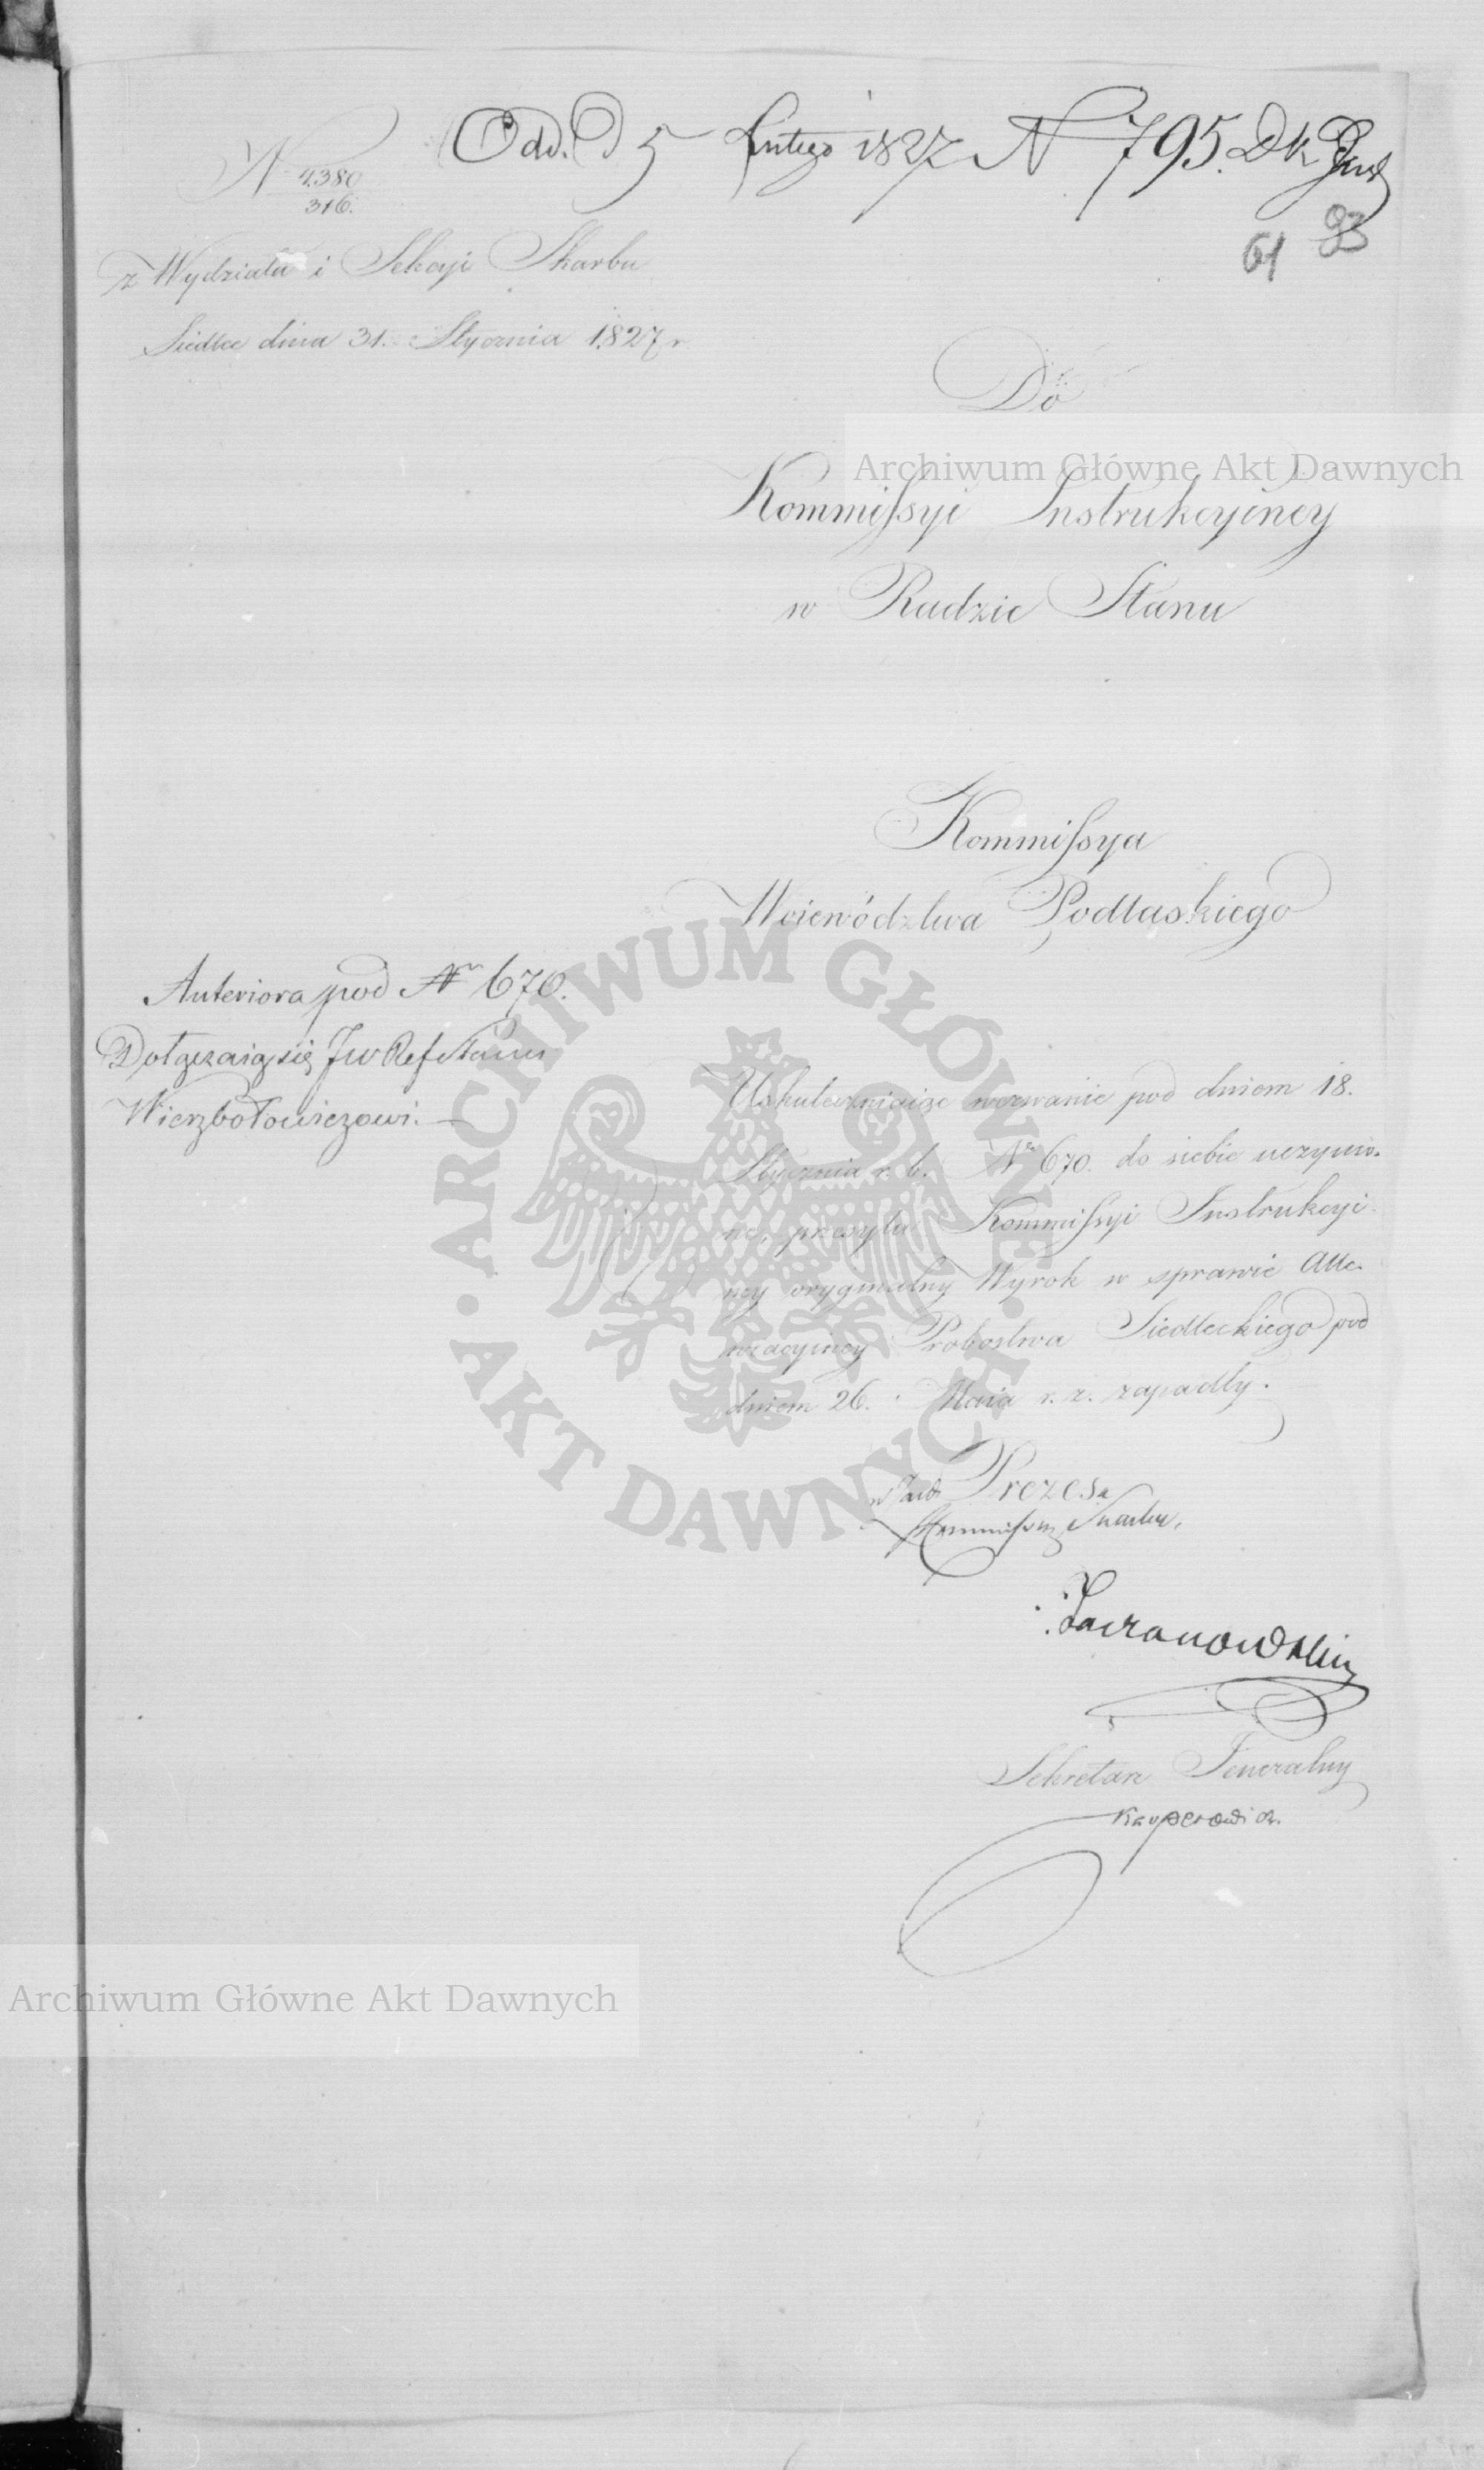 Odd. D 5 Lutego 1827 N 795. Dk
N 4380
316.
61 93
z Wydziału i Sekcyi Skarbu
Siedlce dnia 31. Stycznia 1827 r
Do
Kommifsyi Instrukcyiney
w Radzie Stanu
Kommifsya
Woiewództwa Podlaskiego
Anteriora pod Nr 670.
Dołączaią się JW Ref Stanu
Wierzbołowiczowi. —
Uskuteczniaiąc wezwanie pod dniem 18.
Stycznia r. b. Nr 670. do siebie uczynio-
ne, przesyła Kommifsyi Instrukcyi-
ney oryginalny Wyrok w sprawie Atte-
wiacyiney Probostwa Siedleckiego pod
dniem 26. Maia r. z. zapadły.
w Zast. Prezesa
Kommifsarz Skarbu.
Sekretarz Jeneralny
Archiwum Główne Akt Dawnych
ARCHIWUM GŁÓWNE · AKT DAWNYCH ·
Archiwum Główne Akt Dawnych